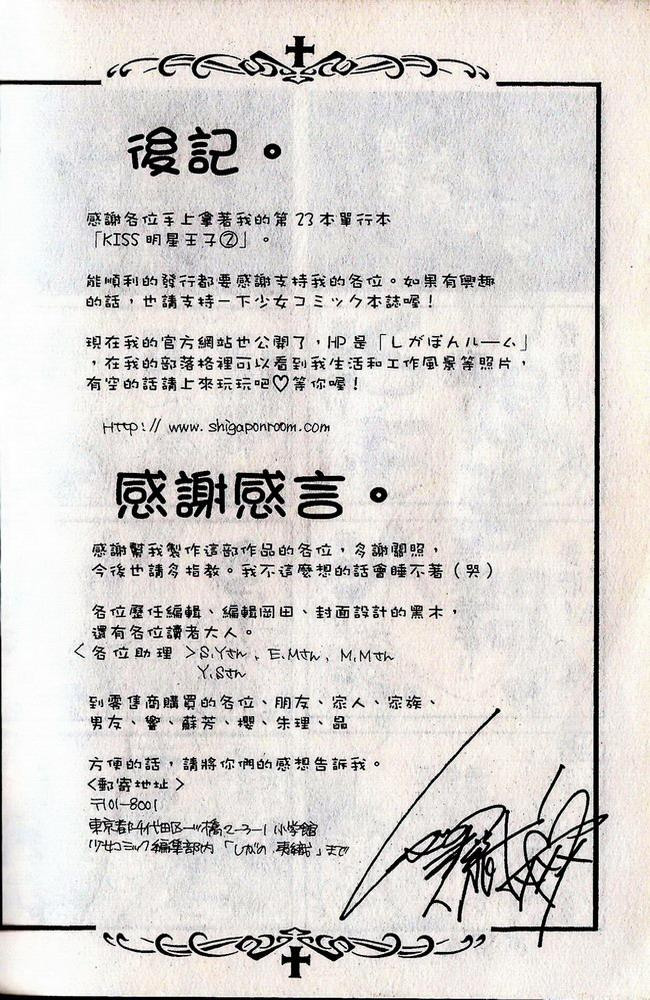 後記。
感謝各位手上拿著我的第23本單行本
「KISS明星王子②」。
能順利的發行都要感謝支持我的各位。如果有興趣
的話，也請支持一下少女コミック本誌喔！
現在我的官方網站也公開了，HP是「しがぽんルーム」
，在我的部落格裡可以看到我生活和工作風景等照片，
有空的話請上來玩玩吧♡等你喔！
Http://www.shigaponroom.com
感謝感言。
感謝幫我製作這部作品的各位，多謝關照，
今後也請多指教。我不這麼想的話會睡不著（哭）
各位歷任編輯、編輯岡田、封面設計的黑木，
還有各位讀者大人。
＜各位助理＞S.Yさん、E.Mさん、M.Mさん
Y.Sさん
到零售商購買的各位、朋友、家人、家族、
男友、響、蘇芳、櫻、朱理、晶
方便的話，請將你們的感想告訴我。
＜郵寄地址＞
〒101-8001
東京都千代田区一ツ橋2-3-1 小学館
少女コミック編集部内「しがの夷織」まで